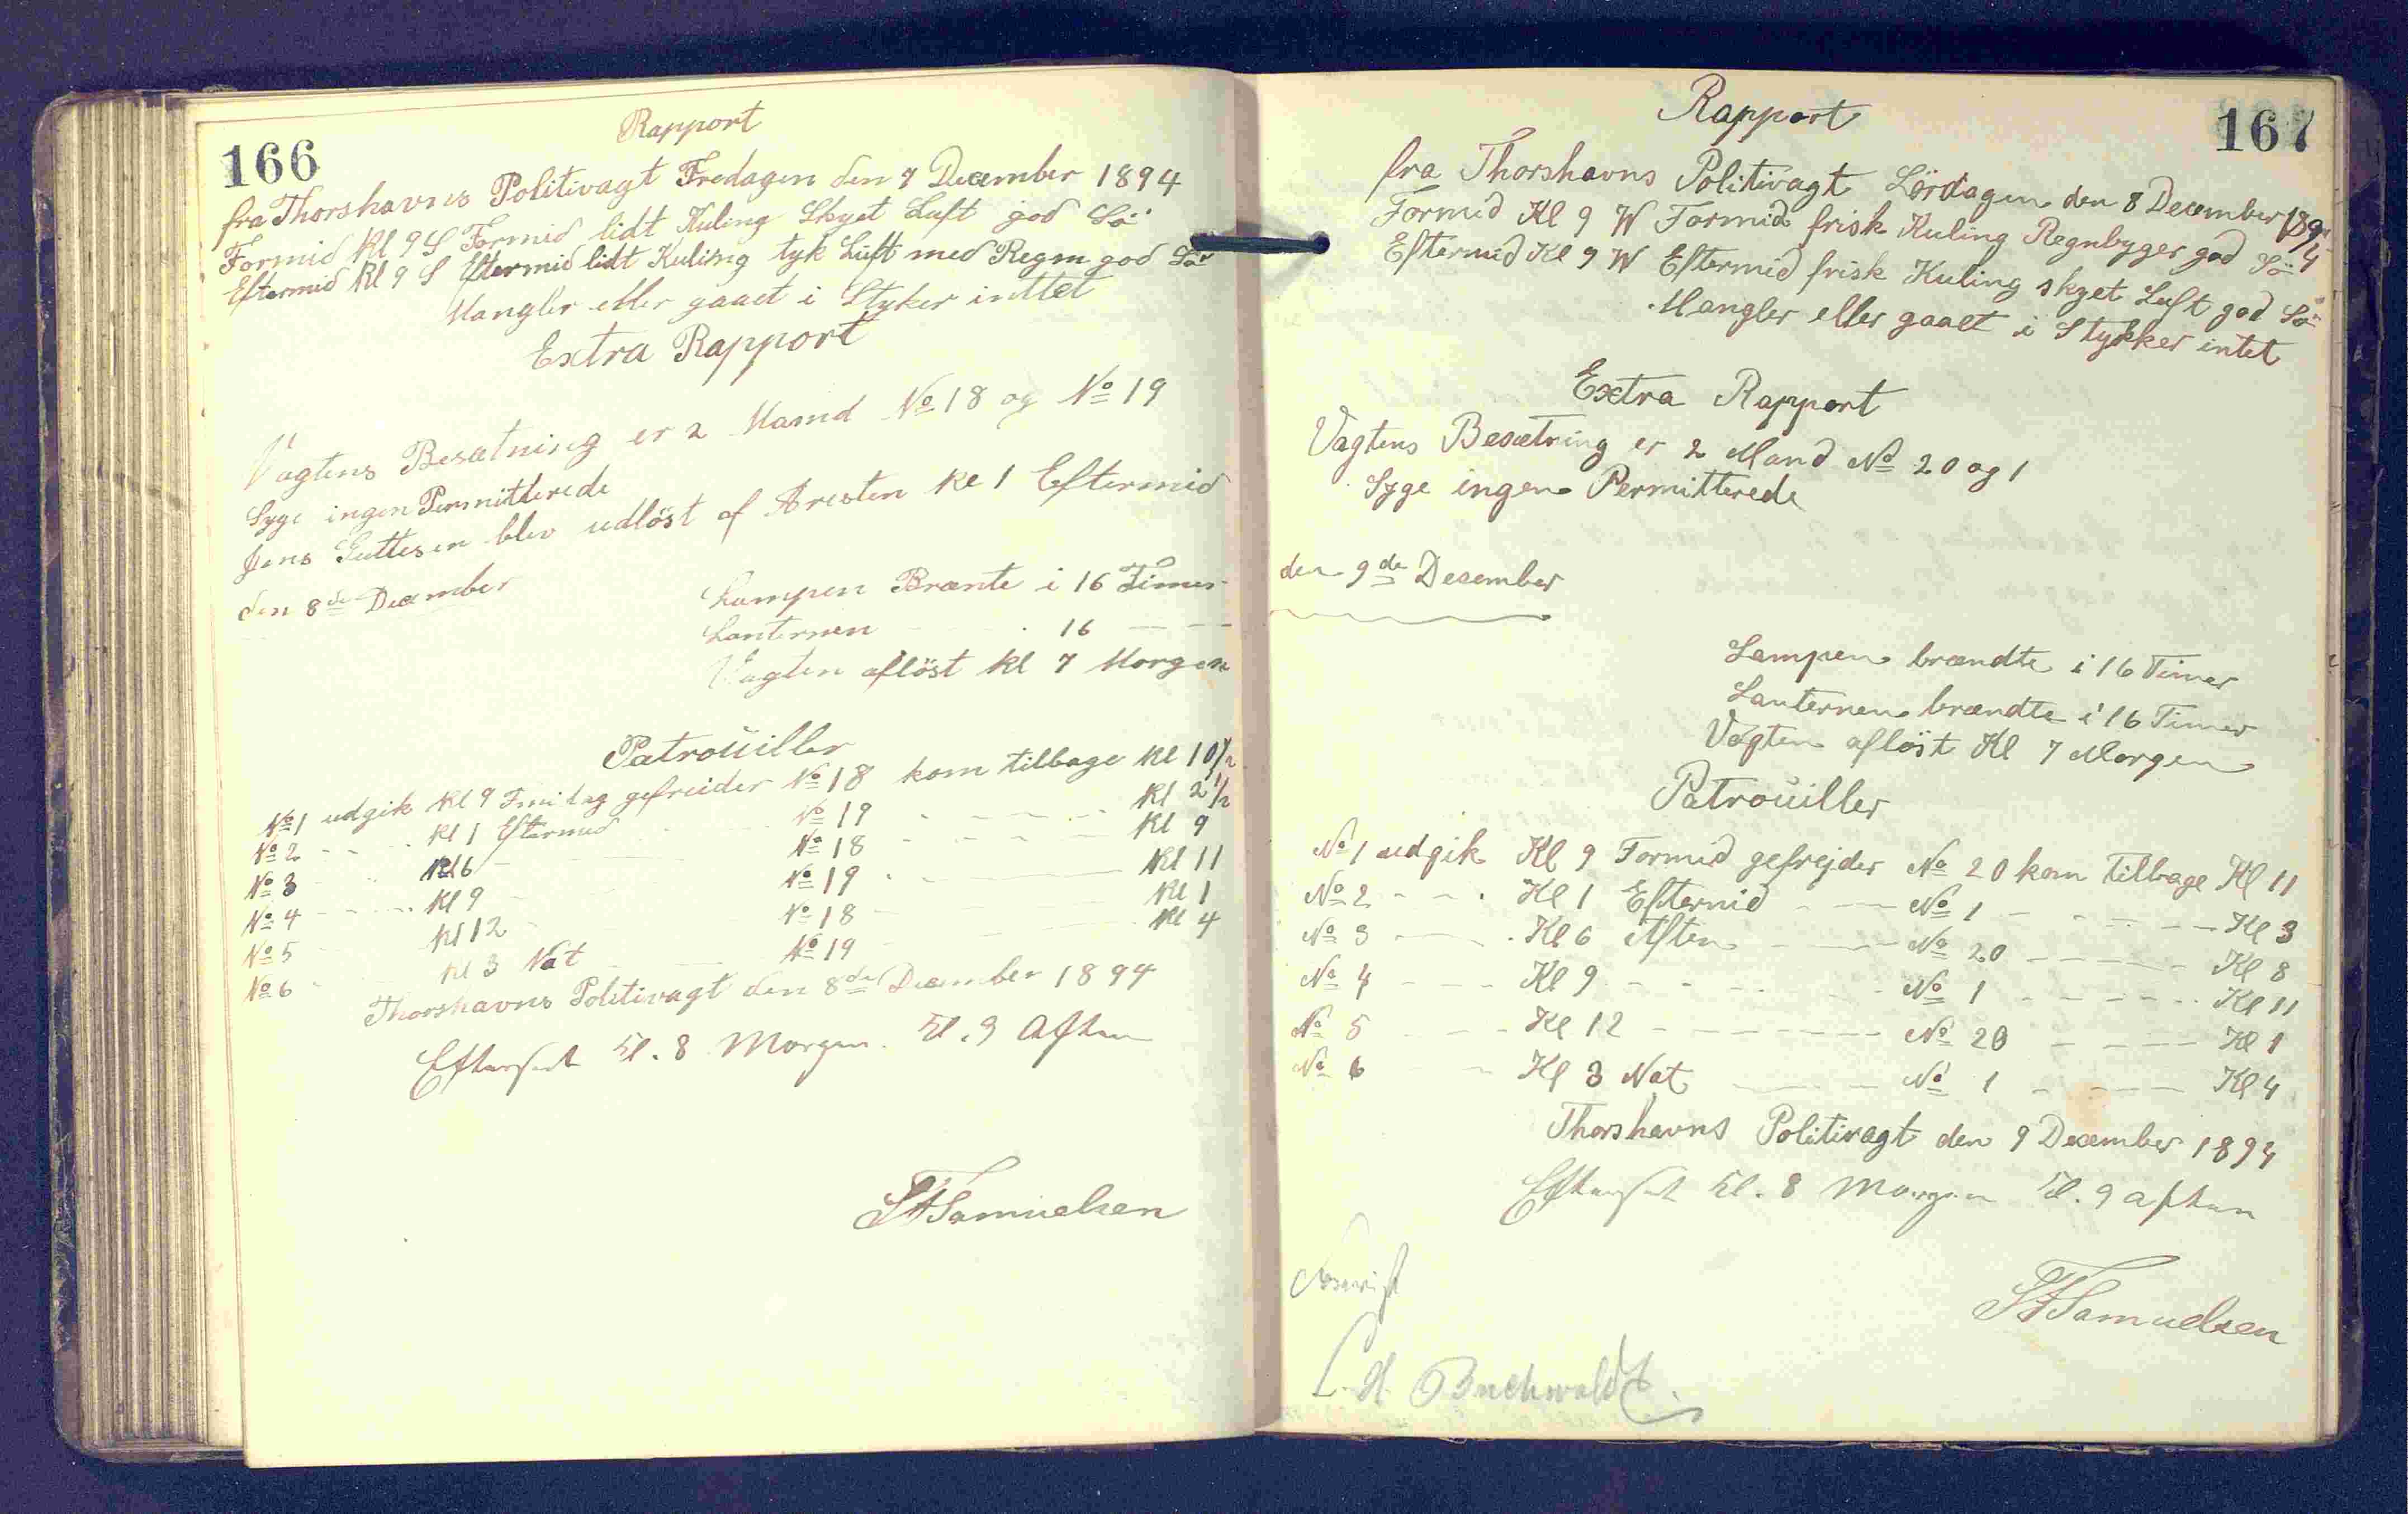 166
Rapport
fra Thorshavns Politivagt Fredagen den 7 December 1894
Formid Kl 9 S Formid lidt Kuling Skyet Luft god Sö
Eftermid Kl 9 S Eftermid lidt Kuling tyk Luft med Regn god Sö
Mangler eller gaaet i Styker inttet
Extra Rapport
Vagtens Besætning er 2 Mamd No 18 og No 19
Syge ingen Permitterede
Jens Guttesen blev udlöst af Aresten Kl 1 Eftermid
den 8de December
Lampen Brænte i 16 Timer
Lanternen - - 16 - -
Vagten aflöst Kl 7 Morgen
Patrouiller
No 1 udgik Kl 9 gefreider No 18 kom tilbage Kl 10 1/2
No 2 - - - Kl 1 Eftermid - - No 19 - - - - Kl 2 1/2
No 3 - - Kl 6 - - No 18 - - - - Kl 9
No 4 - - - - Kl 9 - - No 19 - - - Kl 11
No 5 - - Kl 12 - - No 18 - - - Kl 1
No 6 - - Kl 3 Nat - - No 19 - - - Kl 4
Thorshavns Politivagt den 8de December 1894
Efterset Kl. 8 Morgen. Kl. 9 Aften
Samuelsen
167
Rapport
fra Thorshavns Politivagt Lördagen den 8 December 1894
Formid Kl 9 W Formid frisk Kuling Regnbyger god Sö
Eftermid Kl 9 W Eftermid frisk Kuling skyet Luft god Sö
Mangler eller gaaet i Stykker intet
Extra Rapport
Vagtens Besætning er 2 Mand No 20 og 1
Syge ingen Permitterede
den 9de Desember
Lampen brændte i 16 Timer
Lanternen brændte i 16 Timer
Vagten aflöst Kl 7 Morgen
Patrouiller
No 1 udgik Kl 9 Formid gefrejder No 20 kom Tilbage Kl 11
No 2 - - - Kl 1 Eftermid - - No 1 - - - - Kl 3
No 3 - - - Kl 6 Aften - - No 20 - - - - Kl 8
No 4 - - - Kl 9 - - - - No 1 - - - - Kl 11
No 5 - - - Kl 12 - - - - No 20 - - - - Kl 1
No 6 - - Kl 3 Nat - - - No 1 - - - - Kl 4
Thorshavns Politivagt den 9 December 1894
Efterset Kl. 8 Morgen Kl. 9 Aften
Samuelsen
Buchwaldt.